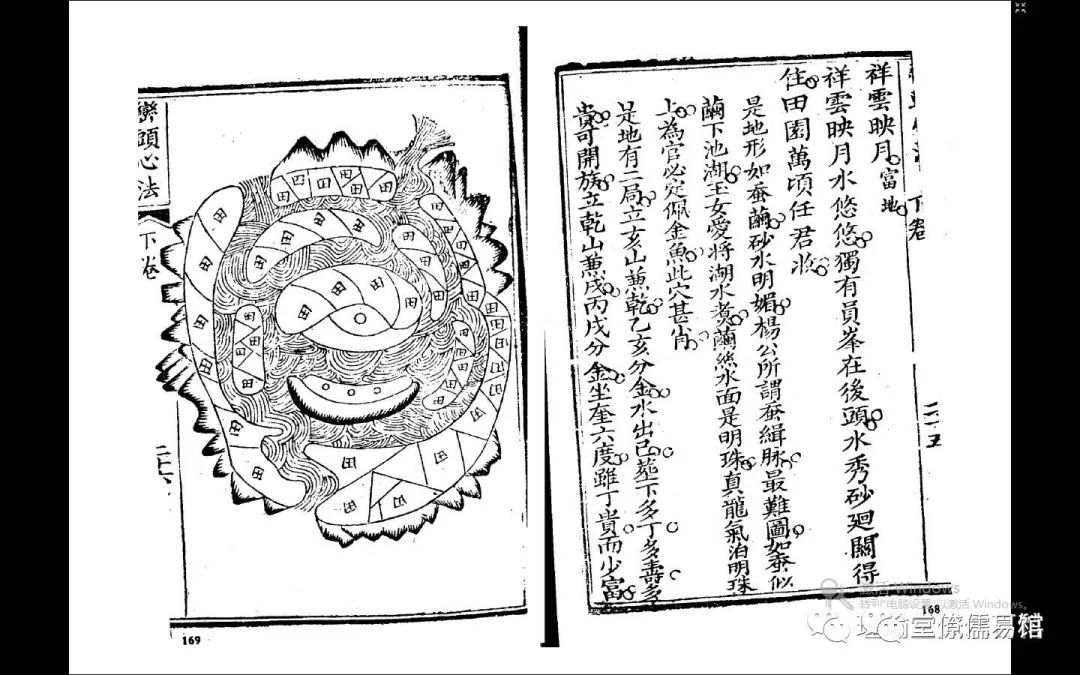 下卷
二十五
祥雲映月 富地
祥雲映月水悠悠獨有員峯在後頭水秀砂廻關得
住田園萬頃任君收
是地形如蚕繭砂水明媚楊公所謂蚕緝脉最難圖如蚕似
繭下池湖玉女愛將湖水煮繭絲水面是明珠真龍氣泊明珠
上為官必定佩金魚此穴甚肖
是地有二局立亥山兼乾乙亥分金水出己葬下多丁多壽多
貴可開族立乾山兼戌丙戌分金坐奎六度雖丁貴而少富
168
巒頭心法
下卷
二十六
田 田 田 田 田 田 田 田 田 田 田 田 田 田 田 田 田 田 田 田
169
Windows
转到"电脑设置"以激活 Windows。
堂僚儒易馆